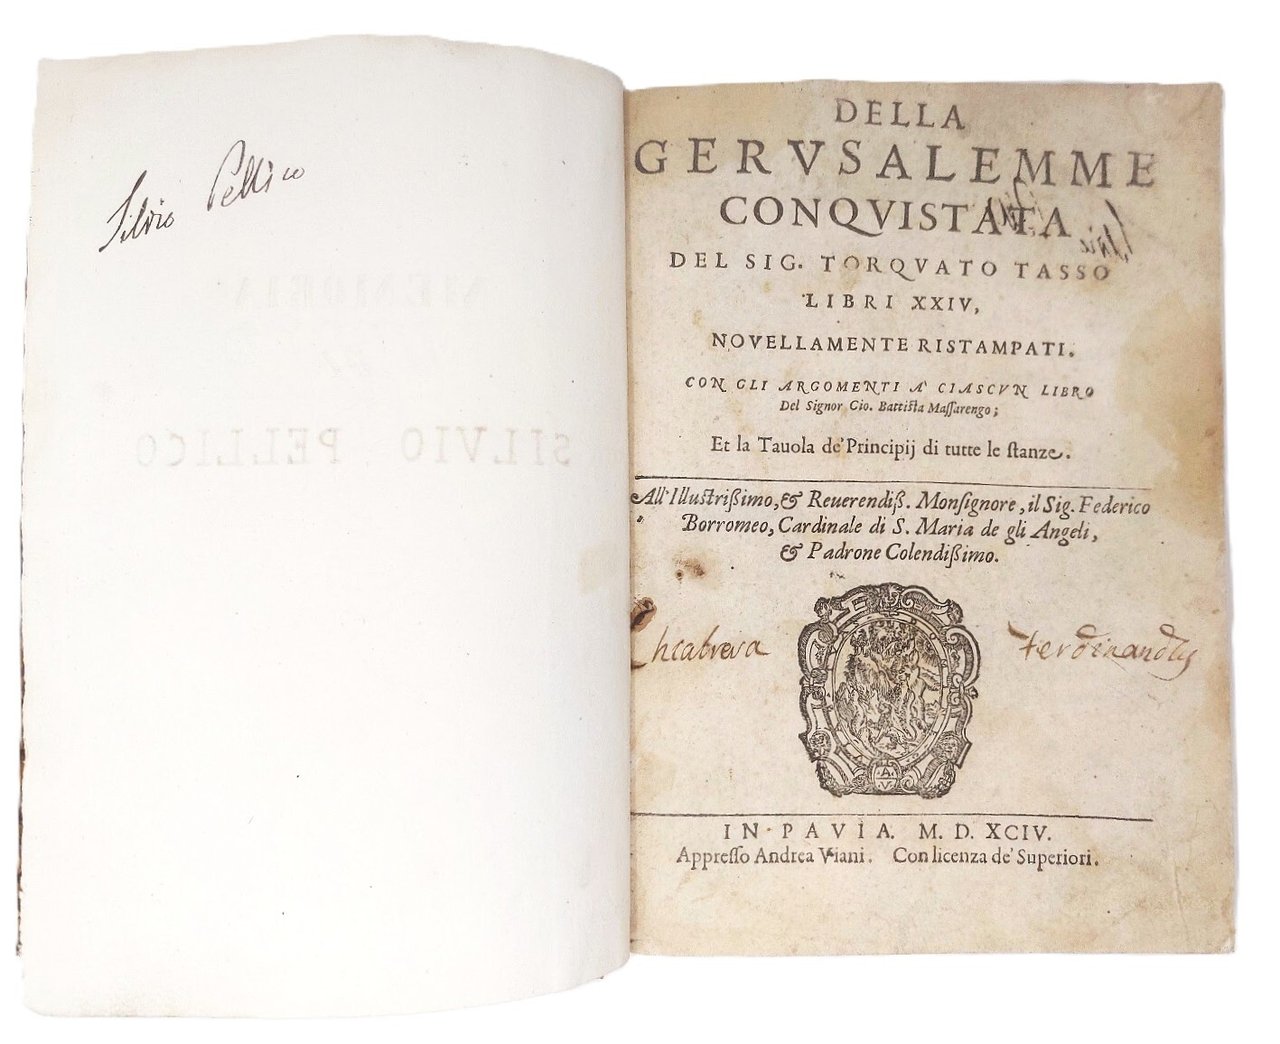 Silvio Pellico
SILVIO PELLICO
DELLA
GERVSALEMME
CONQVISTATA
DEL SIG. TORQVATO TASSO
LIBRI XXIV,
NOVELLAMENTE RISTAMPATI.
CON GLI ARGOMENTI A' CIASCVN LIBRO
Del Signor Gio. Battista Massarengo;
Et la Tauola de' Principij di tutte le stanze.
All'Illustrißimo, & Reuerendiß. Monsignore, il Sig. Federico
Borromeo, Cardinale di S. Maria de gli Angeli,
& Padrone Colendißimo.
Ferdinandus
A.
V
IN PAVIA. M. D. XCIV.
Appresso Andrea Viani. Con licenza de' Superiori.